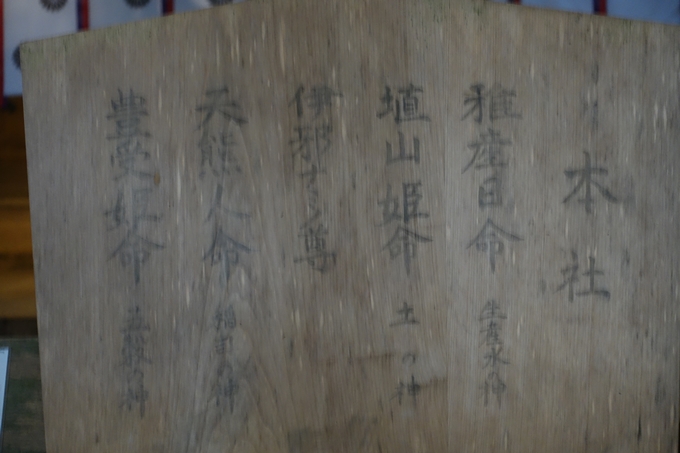 本社
雅産日命 生産水の神
埴山姫命 土の神
伊邪那尊
天熊人命 稲の神
豊受姫命 五穀の神